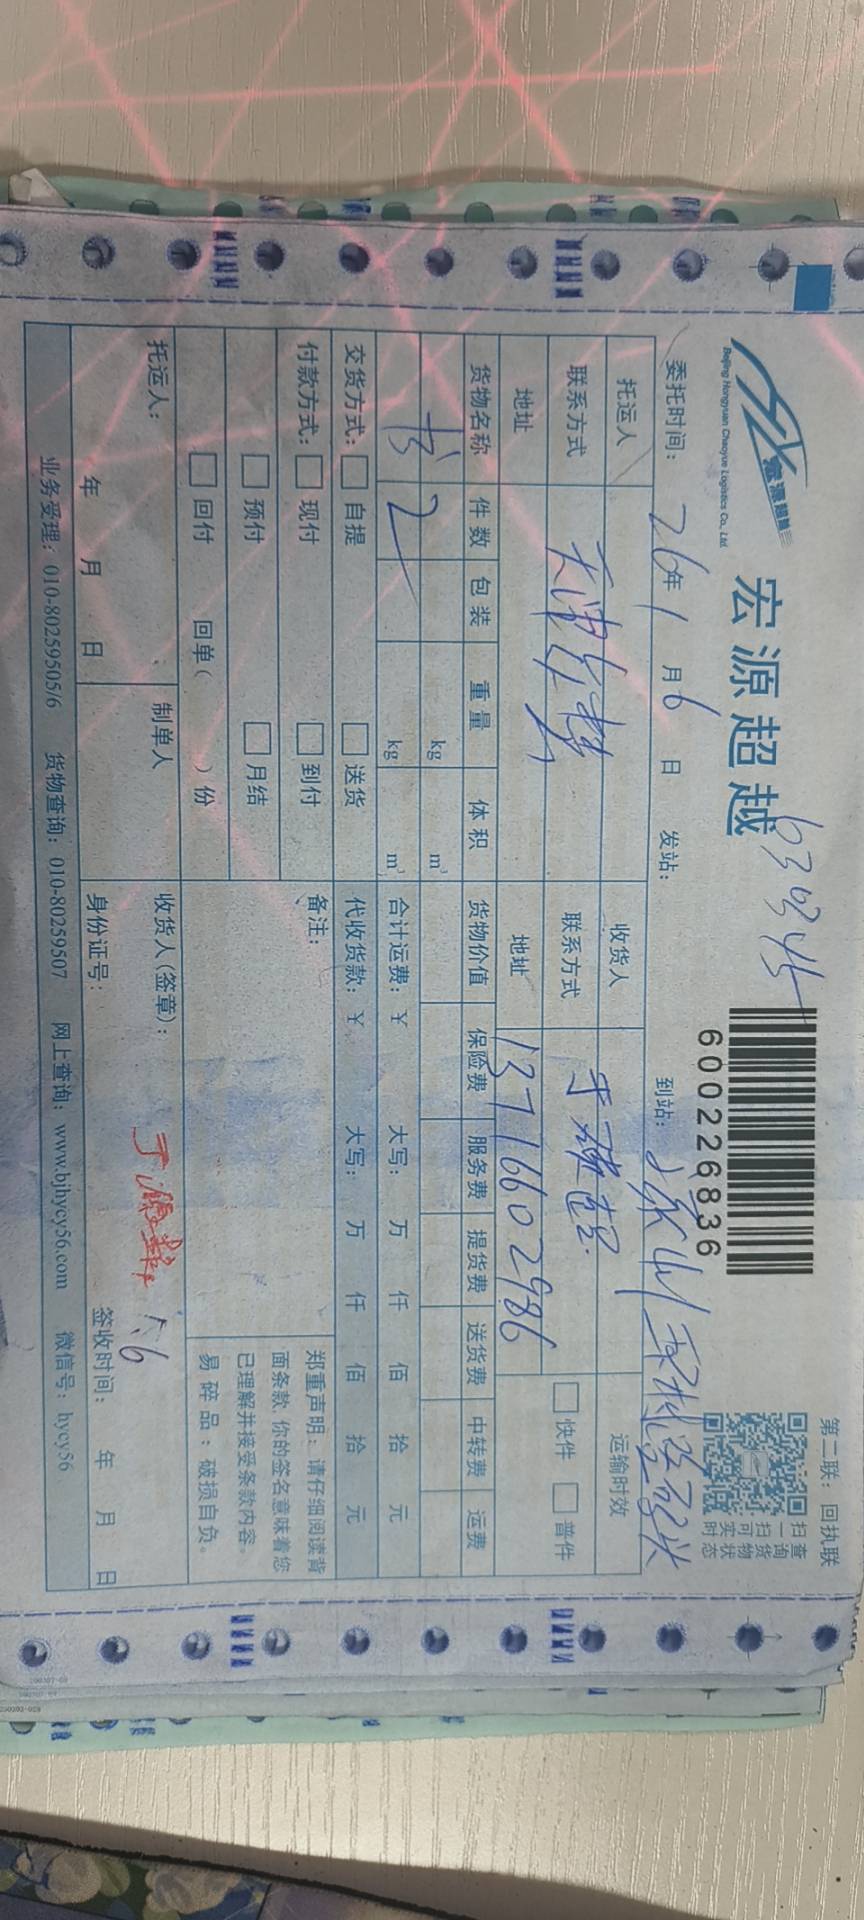 宏源超越
Beijing Hongyuan Chaoyue Logistics Co., Ltd.
宏源超越
6000226836
第二联：回执联
扫一扫可实时
查询货物状态
委托时间： 26年 1月 6日 发站： 到站：
托运人 收货人 运输时效
联系方式 联系方式 快件 普件
地址 地址 13716602986
货物名称 件数 包装 重量 体积 货物价值 保险费 服务费 提货费 送货费 中转费 运费
书 2 kg m³
kg m³ 合计运费：¥ 大写： 万 仟 佰 拾 元
交货方式： 自提 送货 代收货款：¥ 大写： 万 仟 佰 拾 元
付款方式： 现付 到付 备注：
预付 月结
回付 回单（ ）份
郑重声明：请仔细阅读背
面条款 你的签名意味着您
已理解并接受条款内容。
易碎品：破损自负。
托运人： 制单人 收货人(签章)： 1.6
年 月 日 身份证号： 签收时间： 年 月 日
业务受理：010-80259505/6 货物查询：010-80259507 网上查询：www.bjhycy56.com 微信号：hycy56